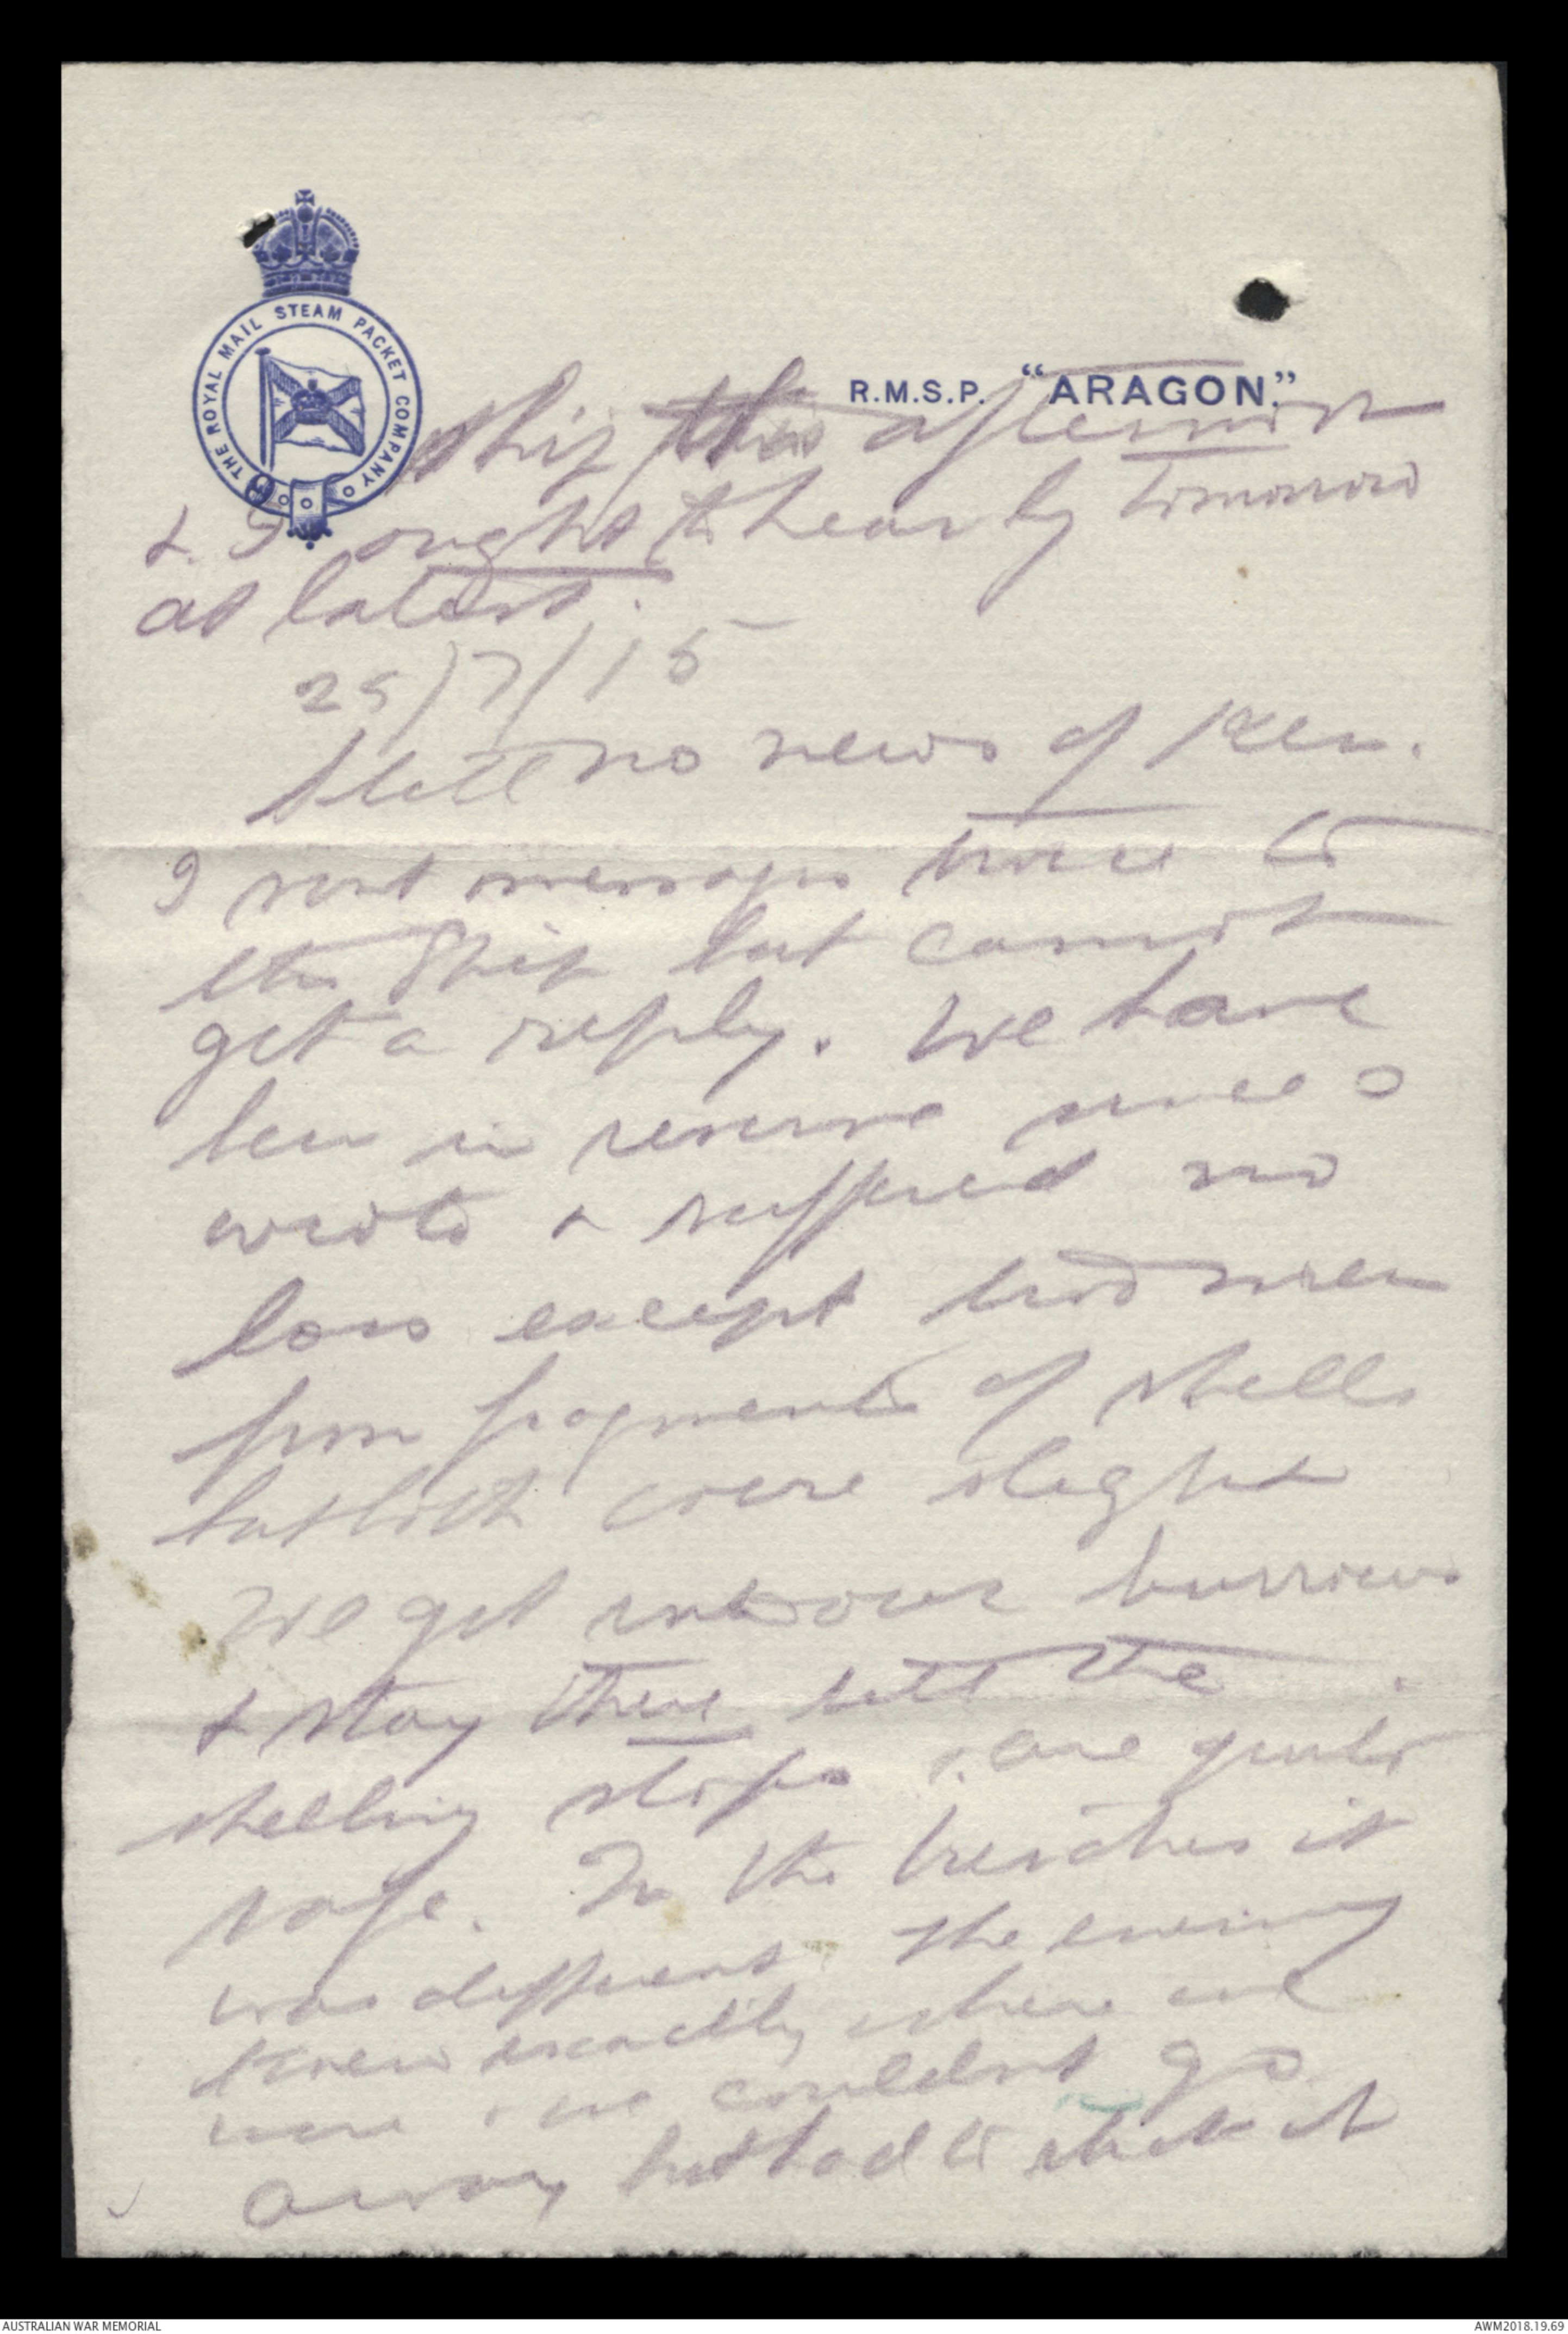 THE ROYAL MAIL STEAM PACKET COMPANY
R.M.S.P. "ARAGON."
ship this afternoon
& I ought to hear by tomorrow
at latest.
25/7/15
Still no news of Ken.
I sent messages twice to
the Ship but cannot
get a reply. We have
been in reserve since I
wrote & suffered no
loss except two men
from fragments of shells
but both were slight
We get into our burrows
& stay there till the
shelling stops & are quite
safe. In the trenches it
was different. The enemy
knew exactly where we
were & we couldnt go
away but had to stick it
AUSTRALIAN WAR MEMORIAL
AWM2018.19.69